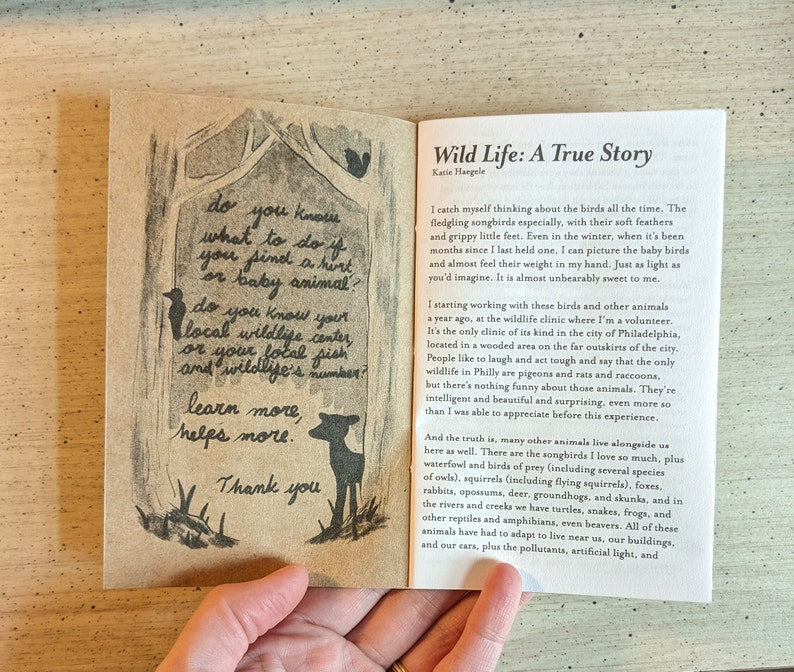 do you know
what to do if
you find a hurt
or baby animal?
do you know your
local wildlife center,
or your local fish
and wildlife's number?
learn more,
helps more.
Thank you
Wild Life: A True Story
Katie Haegele
I catch myself thinking about the birds all the time. The
fledgling songbirds especially, with their soft feathers
and grippy little feet. Even in the winter, when it's been
months since I last held one, I can picture the baby birds
and almost feel their weight in my hand. Just as light as
you'd imagine. It is almost unbearably sweet to me.
I starting working with these birds and other animals
a year ago, at the wildlife clinic where I'm a volunteer.
It's the only clinic of its kind in the city of Philadelphia,
located in a wooded area on the far outskirts of the city.
People like to laugh and act tough and say that the only
wildlife in Philly are pigeons and rats and raccoons,
but there's nothing funny about those animals. They're
intelligent and beautiful and surprising, even more so
than I was able to appreciate before this experience.
And the truth is, many other animals live alongside us
here as well. There are the songbirds I love so much, plus
waterfowl and birds of prey (including several species
of owls), squirrels (including flying squirrels), foxes,
rabbits, opossums, deer, groundhogs, and skunks, and in
the rivers and creeks we have turtles, snakes, frogs, and
other reptiles and amphibians, even beavers. All of these
animals have had to adapt to live near us, our buildings,
and our cars, plus the pollutants, artificial light, and